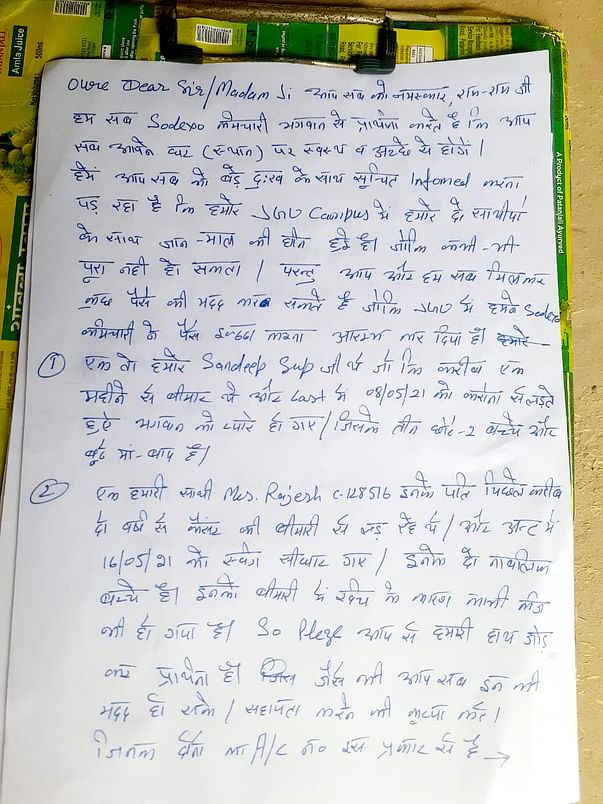 Amla Juice
500ml
A Product of Patanjali Ayurved
Oure Dear Sir/Madam Ji आप सब को नमस्कार, राम-राम जी
हम सब Sodexo कर्मचारी भगवान से प्रार्थना करते है कि आप
सब अपने घर (स्थान) पर स्वस्थ व अच्छे से होगें।
हमें आप सब को बड़े दुःख के साथ सूचित Infomed करना
पड़ रहा है कि हमारे JGU Campus में हमारे दो साथीयों
के साथ जान-माल की हानि हुई है। जोकि कभी-भी
पूरा नही हो सकता। परन्तु आप और हम सब मिलकर
कुछ पैसे की मदद कर सकते है जोकि JGU में हमने Sodexo
कर्मचारी के पैसे इकठ्ठा करना आरम्भ कर दिया है। हमारे
1 एक तो हमारे Sandeep Sup जी थे जो कि करीब एक
महीने से बीमार थे और Last में 08/05/21 को कोरोना से लड़ते
हुऐ भगवान को प्यारे हो गए। जिसके तीन छोटे-2 बच्चे और
बूढ़े मां-बाप है।
2 एक हमारी साथी Mrs. Rajesh C-128516 इनके पति पिछले करीब
दो वर्ष से कैंसर की बीमारी से लड़ रहे थे। और अन्ट में
16/05/21 को स्वर्ग सीधार गए। इनके दो नाबालिक
बच्चे है। इनकी बीमारी में खर्च के कारण काफी कर्ज
भी हो गया है। So Please आप से हमारी हाथ जोड़
कर प्रार्थना है। जिस जैसे भी आप सब इन की
मदद हो सके। सहायता करने की कृप्या करें।
जिनके दोनों का A/C no इस प्रकार से है →